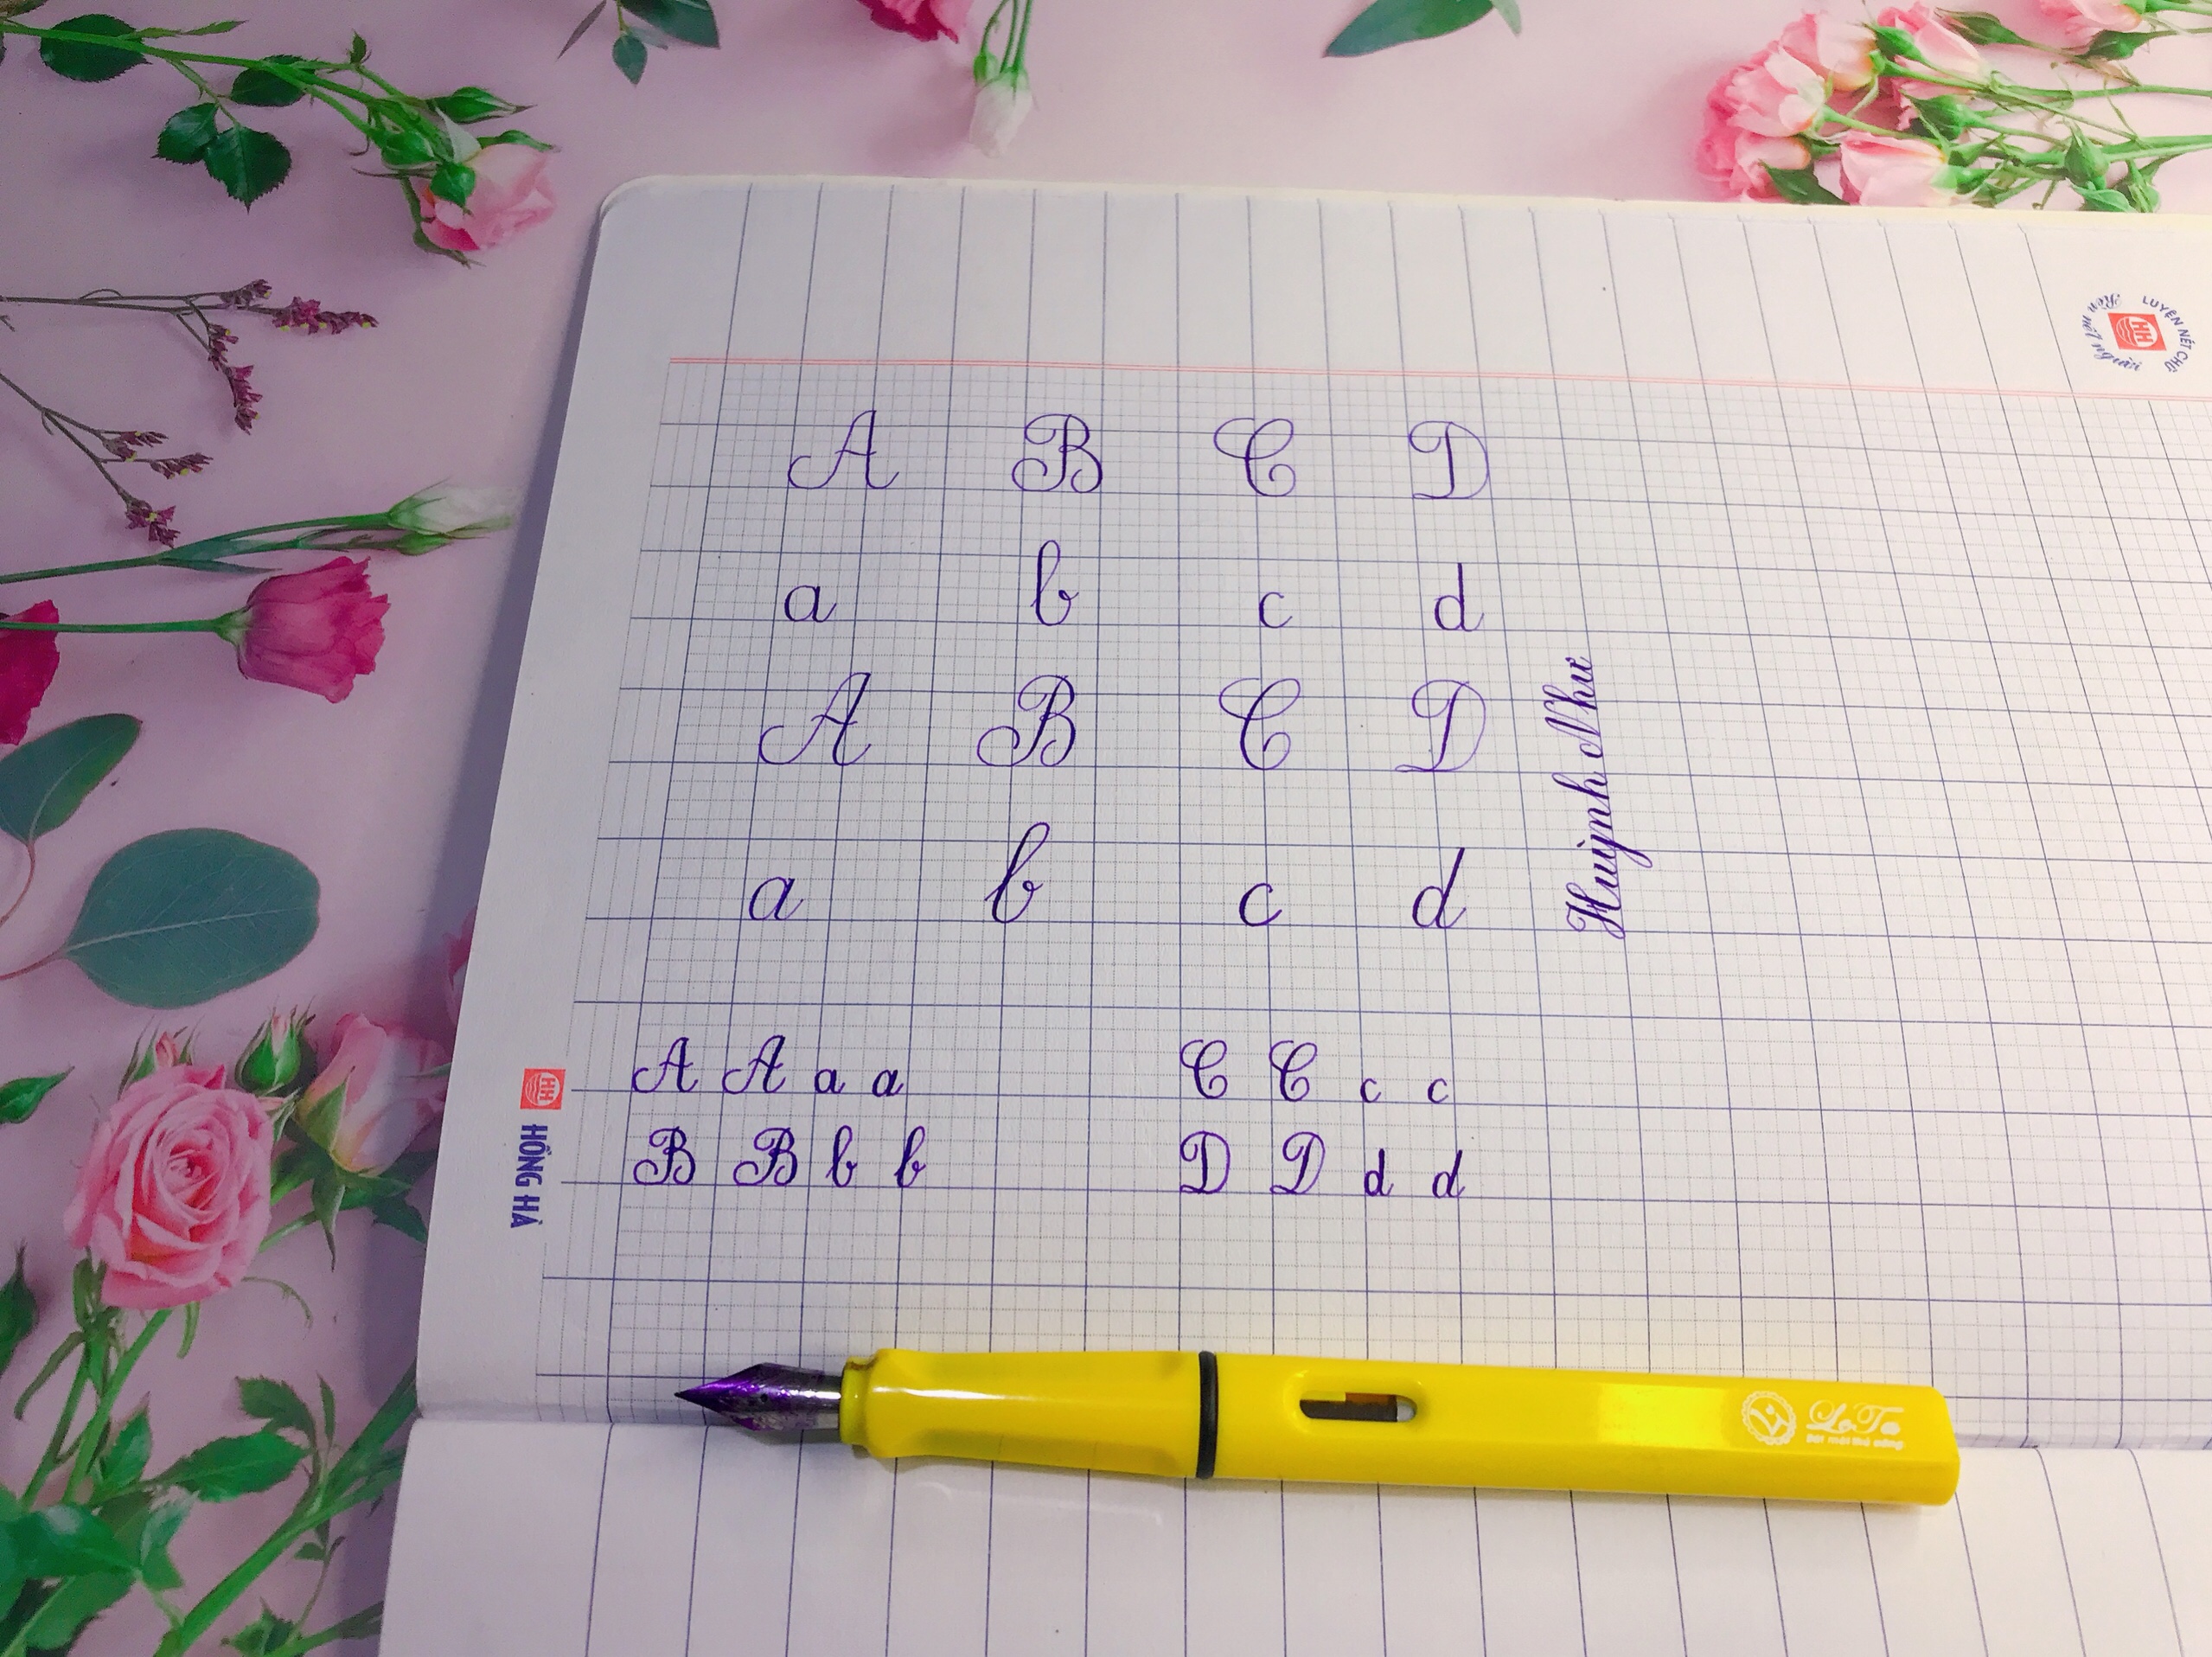 A B C D
a b c d
A B C D
a b c d
Huỳnh Như
A A a a C C c c
B B b b D D d d
HH
HỒNG HÀ
HH
LUYỆN NÉT CHỮ
Rèn nết người
LoTa